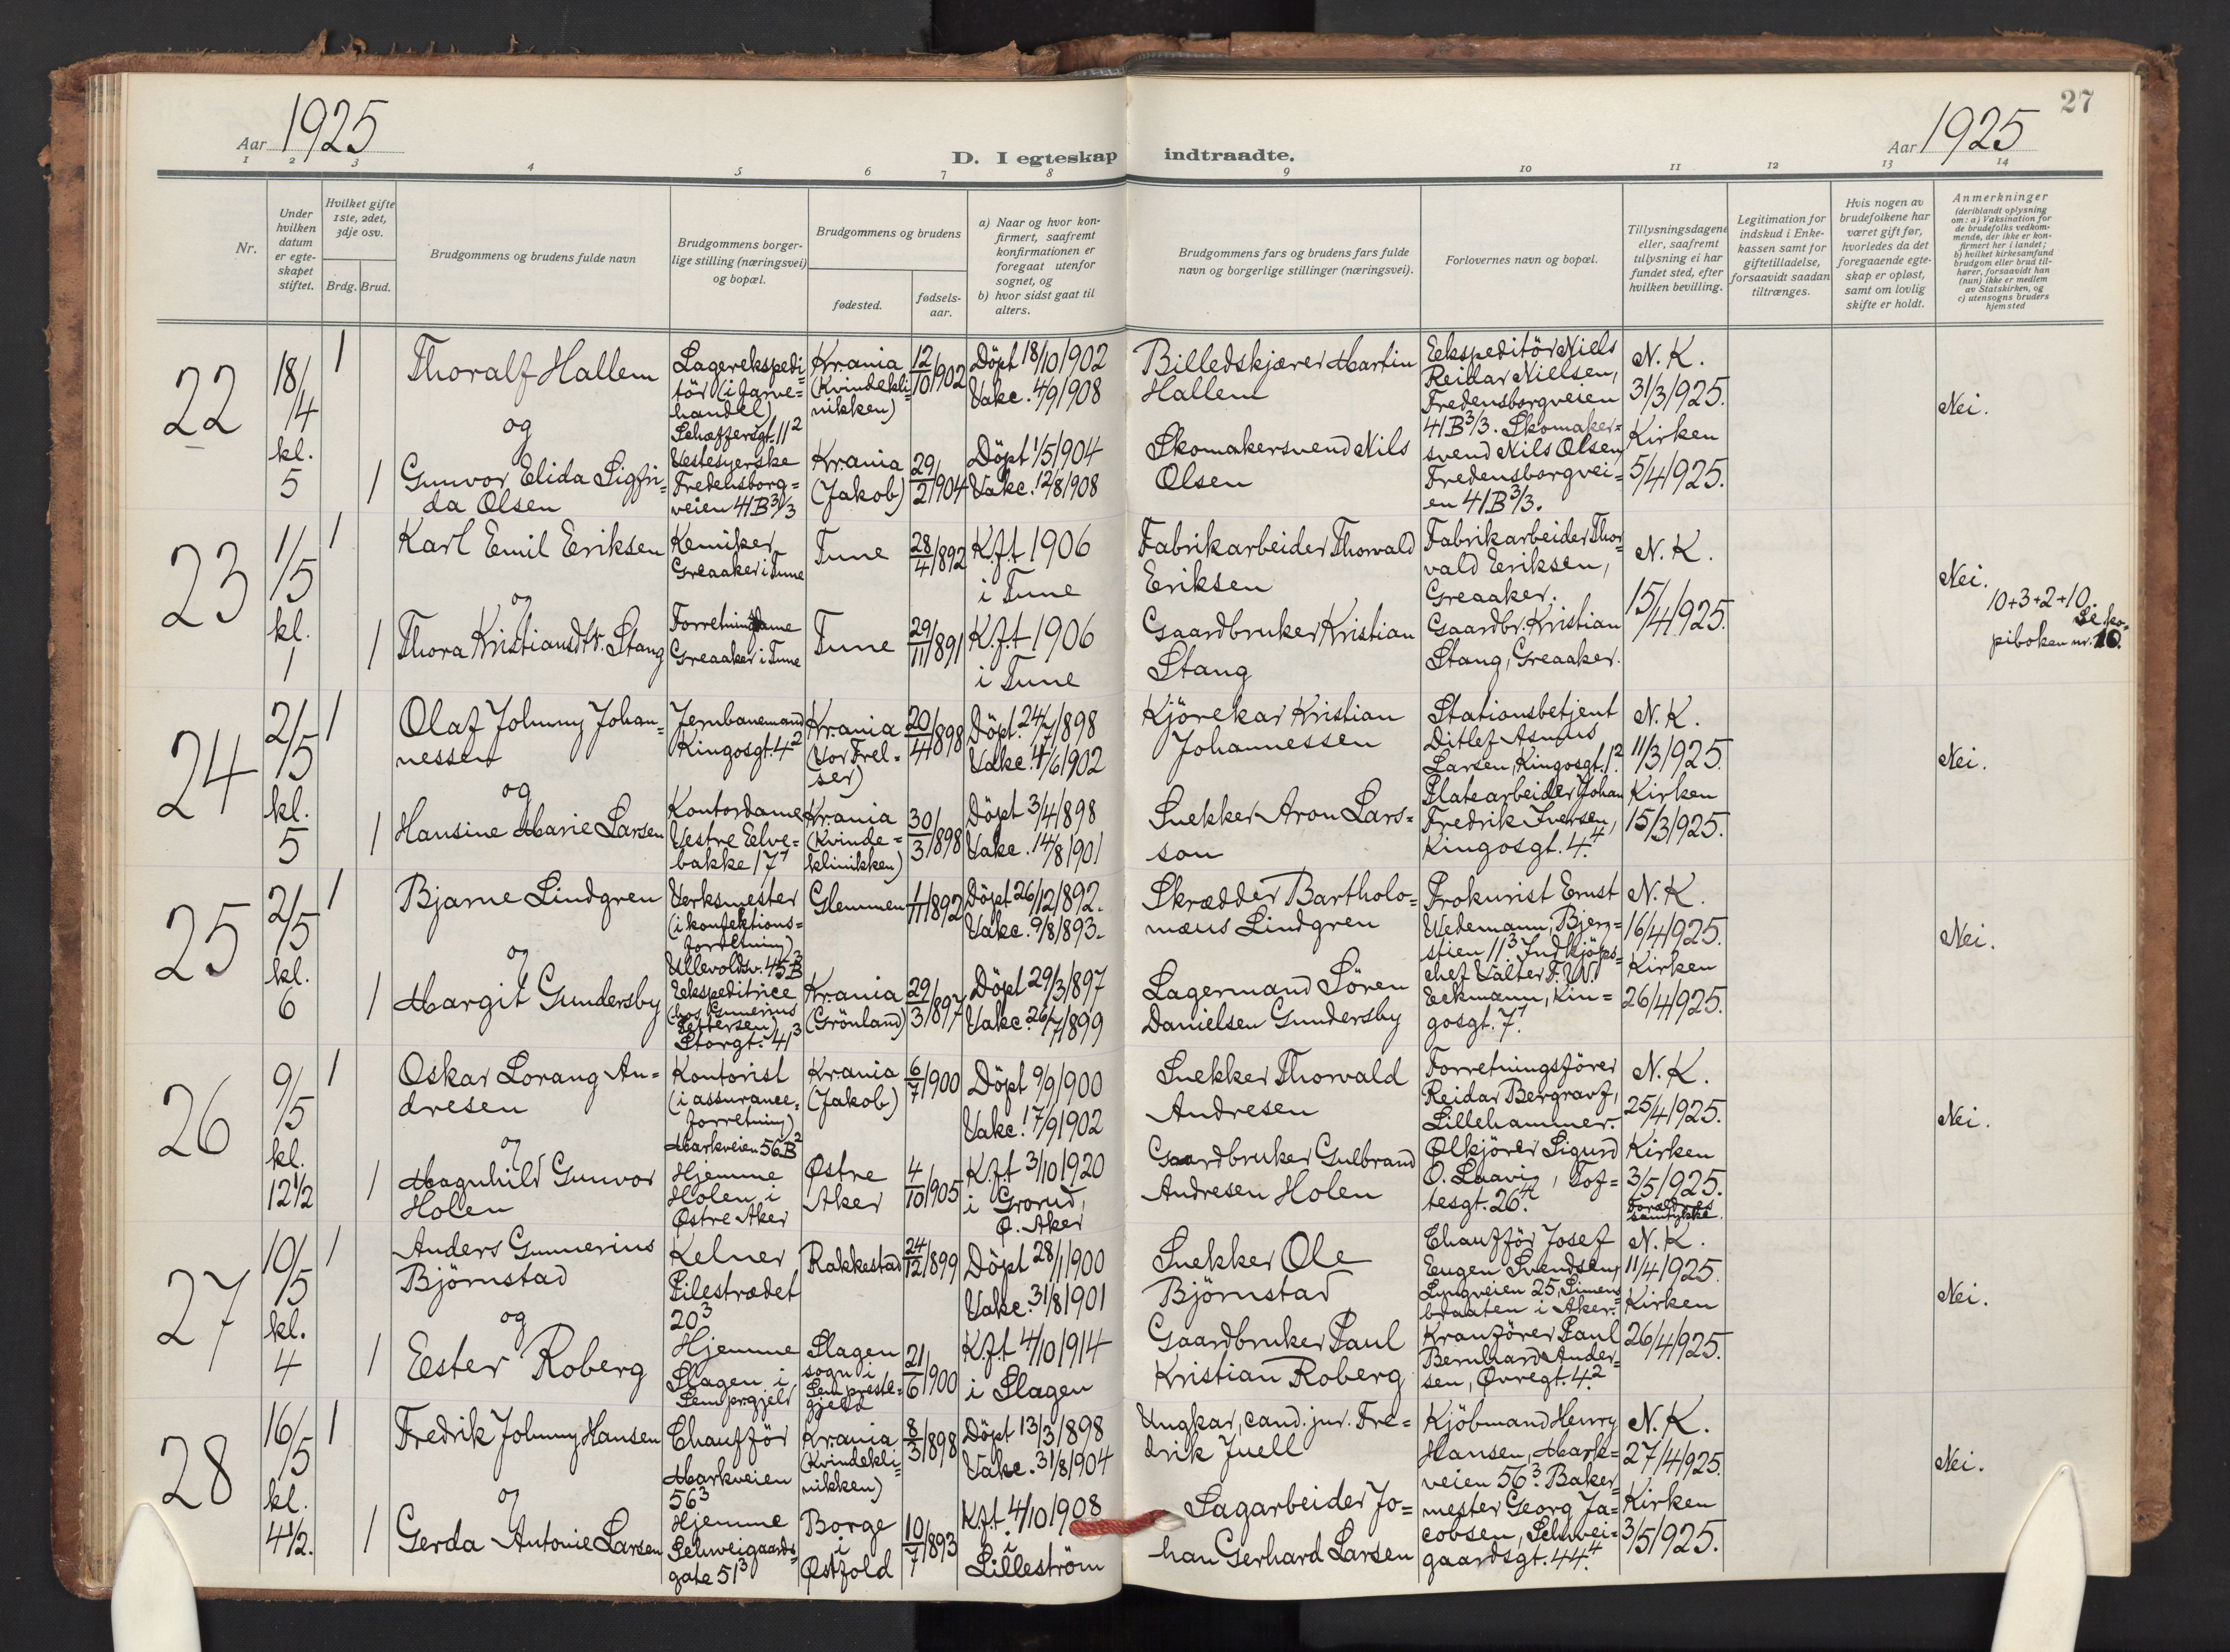 27
Aar 1925
Aar 1925
D. I egteskap indtraadte.
1 2 3 4 5 6 7 8 9 10 11 12 13 14
Nr.
Under hvilken datum er egteskapet stiftet.
Hvilket gifte 1ste, 2det, 3dje osv.
Brdg. Brud.
Brudgommens og brudens fulde navn
Brudgommens borgerlige stilling (næringsvei) og bopæl.
Brudgommens og brudens
fødested.
fødselsaar.
a) Naar og hvor konfirmert, saafremt konfirmationen er foregaat utenfor sognet, og
b) hvor sidst gaat til alters.
Brudgommens fars og brudens fars fulde navn og borgerlige stillinger (næringsvei).
Forlovernes navn og bopæl.
Tillysningsdagene eller, saafremt tillysning ei har fundet sted, efter hvilken bevilling.
Legitimation for indskud i Enkekassen samt for giftetilladelse, forsaavidt saadan tiltrænges.
Hvis nogen av brudefolkene har været gift før, hvorledes da det foregaaende egteskap er opløst, samt om lovlig skifte er holdt.
Anmerkninger
(deriblandt oplysning om: a) Vaksination for de brudefolks vedkommende, der ikke er konfirmert her i landet; b) hvilket kirkesamfund brudgom eller brud tilhører, forsaavidt han (hun) ikke er medlem av Statskirken, og c) utensogns bruders hjemsted
22
18/4
kl.
5
1
Thoralf Hallem
og
Lagerekspedi=
tör (i farve=
handel)
Schæffersgt. 11²
Kr.ania
(Kvindekli=
nikken)
12/10 1902
Döpt 18/10 1902
Vakc. 4/9 1908
Billedskjærer Martin
Hallem
Ekspeditör Niels
Reidar Nielsen,
Fredensborgveien
41B³/3. Skomaker=
svend Nils Olsen
Fredensborgvei=
en 41B³/3.
N. K.
31/3 1925.
Kirken
5/4 1925.
Nei.
1
Gunvor Elida Sigfri=
da Olsen
Vestesyerske
Fredensborg=
veien 41B³/3
Kr.ania
(Jakob)
29/2 1904
Döpt 1/5 1904
Vakc. 12/8 1908
Skomakersvend Nils
Olsen
23
1/5
kl.
1
1
Karl Emil Eriksen
og
Kemiker
Greaaker i Tune
Tune
28/4 1892
K.f.t 1906
i Tune
Fabrikarbeider Thorvald
Eriksen
Fabrikarbeider Thor
vald Eriksen,
Greaaker.
Gaardbr. Kristian
Stang, Greaaker.
N. K.
15/4 1925.
Nei.
10+3+2+10.
Se ko=
piboken nr. 10.
1
Thora Kristiansdtr. Stang
Forretningsdame
Greaaker i Tune
Tune
29/11 1891
K.f.t 1906
i Tune
Gaardbruker Kristian
Stang
24
2/5
kl.
5
1
Olaf Johnny Johan=
nessen
og
Jernbanemand
Kingosgt. 4²
Kr.ania
(Vor Frel=
ser)
20/4 1898
Döpt. 24/7 1898
Vakc. 4/6 1902
Kjörekar Kristian
Johannessen
Stationsbetjent
Ditlef Asmus
Larsen, Kingosgt. 1².
Platearbeider Johan
Fredrik Iversen,
Kingosgt. 4.⁴
N. K.
11/3 1925.
Kirken
15/3 1925.
Nei.
1
Hansine Marie Larsen
Kontordame
Vestre Elve=
bakke 17¹
Kr.ania
(Kvinde=
klinikken)
30/3 1898
Döpt 3/4 1898
Vakc. 14/8 1901
Snekker Aron Lars=
son
25
2/5
kl.
6
1
Bjarne Lindgren
og
Verksmester
(i konfektions=
forretning)
Ullevoldsv. 45B³
Glemmen
1/11 1892
Döpt 26/12 1892.
Vakc. 9/8 1893.
Skrædder Bartholo=
mæus Lindgren
Prokurist Ernst
Wedemann, Bjerg=
stien 11³. Indkjöps=
chef Valter F. W.
Eckmann, Kin=
gosgt. 7¹.
N. K.
16/4 1925.
Kirken
26/4 1925.
Nei.
1
Margit Gundersby
Ekspeditrice
(hos Gunerius
Pettersen)
Storgt. 41³
Kr.ania
(Grönland)
29/3 1897
Döpt 29/3 1897
Vakc. 26/7 1899
Lagermand Sören
Danielsen Gundersby
26
9/5
kl.
12½
1
Oskar Lorang An=
dresen
og
Kontorist
(i assurance=
forretning)
Markveien 56B²
Kr.ania
(Jakob)
6/7 1900
Döpt 9/9 1900
Vakc. 17/9 1902
Snekker Thorvald
Andresen
Forretningsförer
Reidar Bergravf,
Lillehammer.
Ølkjörer Sigurd
O. Laavig, Tof=
tesgt. 26⁴.
N. K.
25/4 1925.
Kirken
3/5 1925.
Forældres
samtykke.
Nei.
1
Magnhild Gunvor
Holen
Hjemme
Holen i
Østre Aker
Østre
Aker
4/10 1905
K.f.t 3/10 1920
i Grorud,
Ø. Aker
Gaardbruker Gulbrand
Andresen Holen
27
10/5
kl.
4
1
Anders Gunnerius
Björnstad
og
Kelner
Pilestrædet
20³
Rakkestad
24/12 1899
Döpt 28/1 1900
Vakc. 31/8 1901
Snekker Ole
Björnstad
Chaufför Josef
Eugen Svendsen,
Lyngveien 25, Simens=
braaten i Aker.
Kranförer Paul
Bernhard Ander=
sen, Øvregt. 4.²
N. K.
11/4 1925.
Kirken
26/4 1925.
Nei.
1
Ester Roberg
Hjemme
Slagen i
Sem pr.gjeld
Slagen
sogn i
Sem preste=
gjeld
21/6 1900
K.f.t 4/10 1914
i Slagen
Gaardbruker Paul
Kristian Roberg
28
16/5
kl.
4½.
1
Fredrik Johnny Hansen
og
Chaufför
Markveien
56³
Kr.ania
(Kvindekli=
nikken)
8/3 1898
Döpt 13/3 1898
Vakc. 31/8 1904
Ungkar, cand. jur. Fre=
drik Juell
Kjöbmand Henry
Hansen, Mark=
veien 56³. Baker
mester Georg Ja=
cobsen, Schwei=
gaardsgt. 44.⁴
N. K.
27/4 1925.
Kirken
3/5 1925.
Nei.
1
Gerda Antonie Larsen
Hjemme
Schweigaards=
gate 51³
Borge
i
Østfold
10/7 1893
K.f.t 4/10 1908
i
Lilleström
Sagarbeider Jo=
han Gerhard Larsen